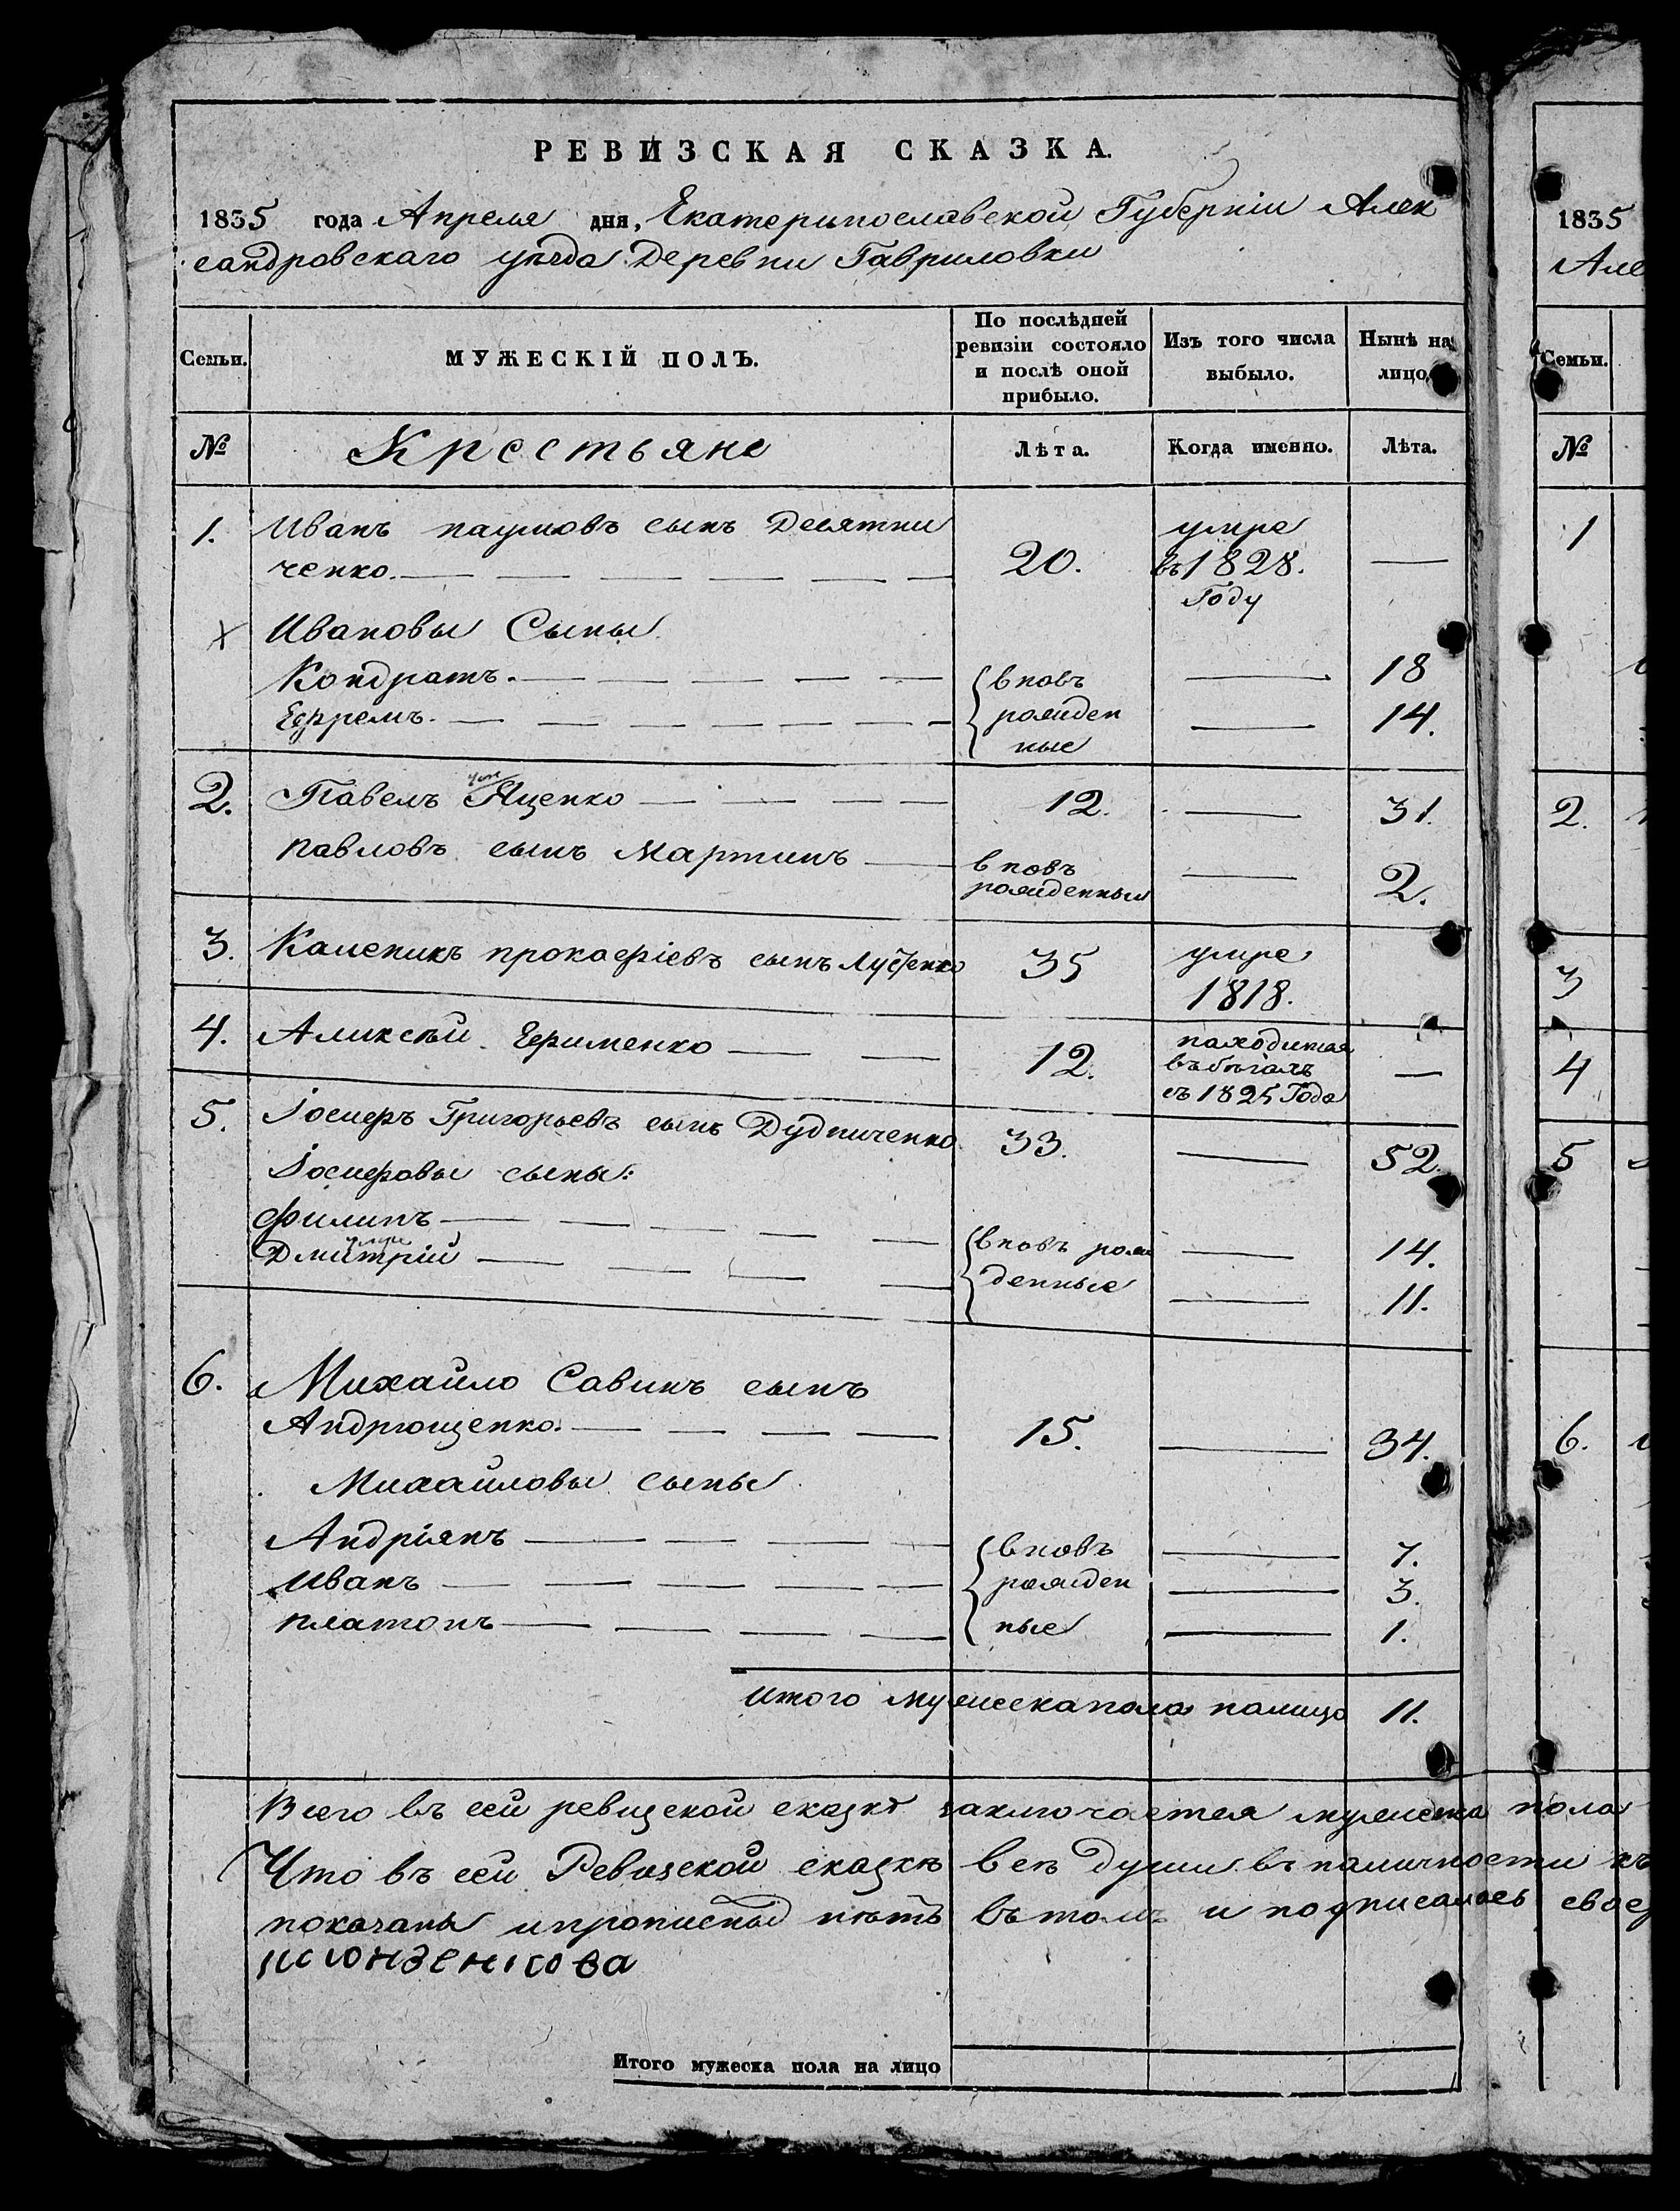 РЕВИЗСКАЯ СКАЗКА.
1835 года Апреля дня, Екатеринославской Губерніи Алек
сандровскаго уѣзда Деревни Гавриловки
Семьи. МУЖЕСКІЙ ПОЛЪ. По послѣдней ревизіи состояло и послѣ оной прибыло. Изъ того числа выбыло. Нынѣ на лицо.
№ Крестьяне Лѣта. Когда именно. Лѣта.
1. Иванъ наумовъ сынъ Десятни умре
ченко. 20. въ 1828. Году
Ивановы Сыны
Кондратъ. вновь 18
Ефремъ. рожден 14.
ные
2. Павелъ Яценко 12. 31.
павловъ сынъ Мартинъ вновь рожденный 2.
3. Каленикъ прокофіевъ сынъ Луценко 35 умре 1818.
4. Аликсѣй Ефименко 12. находится
въ бѣгахъ
съ 1825 Года
5. Іосифъ Григорьевъ сынъ Дудниченко 33. 52.
Іосифовы сыны:
Филипъ вновь рож 14.
умре
Дмитрій денные 11.
6. Михайло Савинъ сынъ
Андрющенко. 15. 34.
Михайловы сыны
Андріянъ вновь 7.
Иванъ рожден 3.
платонъ ные 1.
итого мужеска пола налицо 11.
Всего въ сей ревизской сказкѣ заключается мужеска пола
Что въ сей Ревизской сказкѣ всѣ души въ наличности къ
показаны и прописных нѣтъ въ томъ и подписалась свое
Итого мужеска пола на лицо
1835
Але
Семьи.
№
1
2.
3
4
5
6.